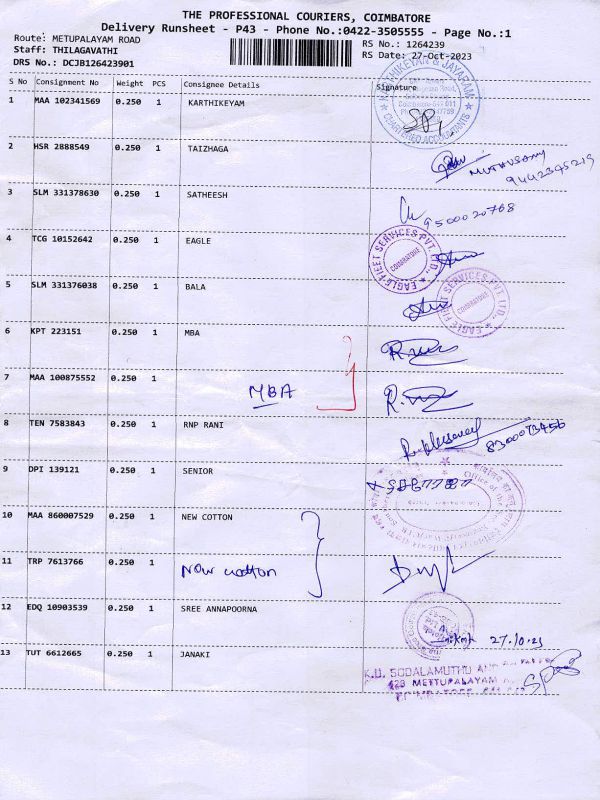 THE PROFESSIONAL COURIERS, COIMBATORE
Delivery Runsheet - P43 - Phone No.:0422-3505555 - Page No.:1
Route: METUPALAYAM ROAD
Staff: THILAGAVATHI
DRS No.: DCJB126423901
RS No.: 1264239
RS Date: 27-Oct-2023
S No Consignment No Weight PCS Consignee Details Signature
1 MAA 102341569 0.250 1 KARTHIKEYAM
KARTHIKEYAN & JAYARAM
CHARTERED ACCOUNTANTS
2 HSR 2888549 0.250 1 TAIZHAGA
MUTHUSAMY
9442395219
3 SLM 331378630 0.250 1 SATHEESH
9500020768
4 TCG 10152642 0.250 1 EAGLE
EAGLE FLEET SERVICES PVT. LTD.,
COIMBATORE
5 SLM 331376038 0.250 1 BALA
EAGLE FLEET SERVICES PVT. LTD.,
COIMBATORE
6 KPT 223151 0.250 1 MBA
7 MAA 100875552 0.250 1 MBA
8 TEN 7583843 0.250 1 RNP RANI
9 DPI 139121 0.250 1 SENIOR
Office of the
10 MAA 860007529 0.250 1 NEW COTTON
11 TRP 7613766 0.250 1 New cotton
12 EDQ 10903539 0.250 1 SREE ANNAPOORNA
27.10.23
13 TUT 6612665 0.250 1 JANAKI
K.U. SODALAMUTHU AND
428 METTUPALAYAM